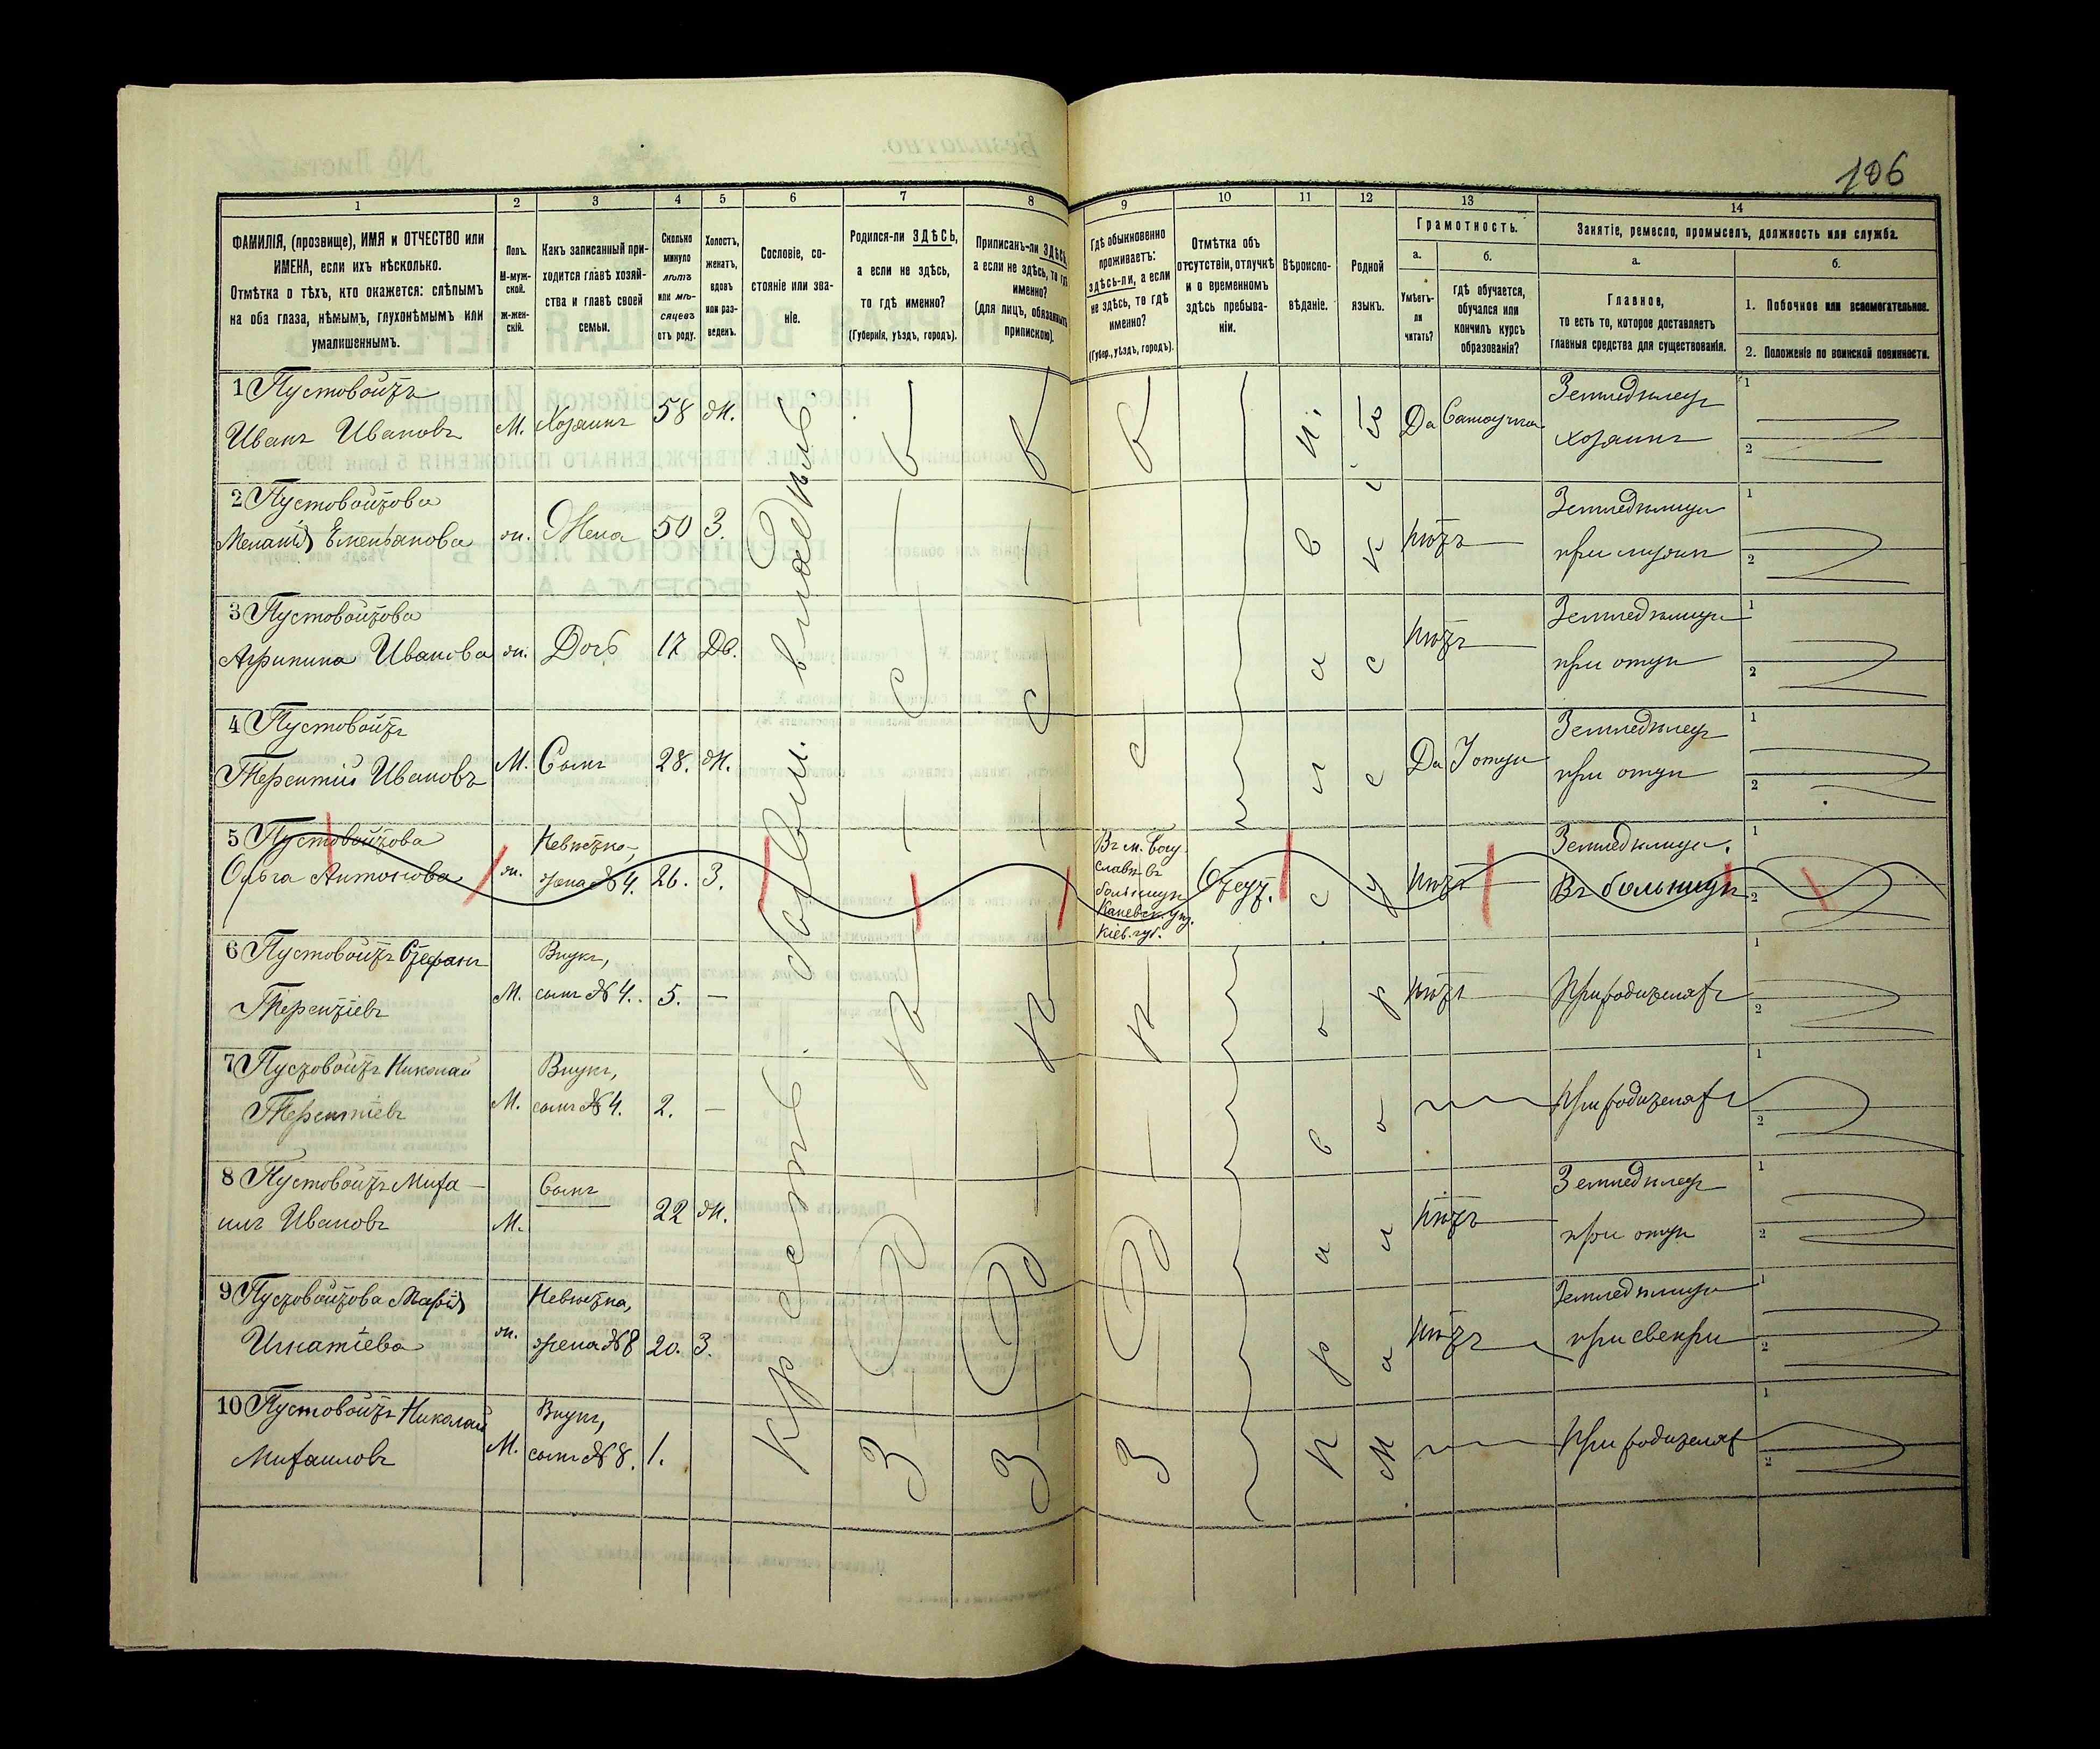 106
1
2
3
4
5
6
7
8
9
10
11
12
13
14
ФАМИЛІЯ, (прозвище), ИМЯ и ОТЧЕСТВО или
ИМЕНА, если ихъ нѣсколько.
Отмѣтка о тѣхъ, кто окажется: слѣпымъ
на оба глаза, нѣмымъ, глухонѣмымъ или
умалишеннымъ.
Полъ.
М-муж-
ской.
Ж-жен-
скій.
Какъ записанный при-
ходится главѣ хозяй-
ства и главѣ своей
семьи.
Сколько
минуло
лѣтъ
или мѣ-
сяцевъ
отъ роду.
Холостъ,
женатъ,
вдовъ
или раз-
веденъ.
Сословіе, со-
стояніе или зва-
ніе.
Родился-ли ЗДѢСЬ,
а если не здѣсь,
то гдѣ именно?
(Губернія, уѣздъ, городъ).
Приписанъ-ли ЗДѢСЬ,
а если не здѣсь, то гдѣ
именно?
(для лицъ, обязанныхъ
припискою).
Гдѣ обыкновенно
проживаетъ:
здѣсь-ли, а если
не здѣсь, то гдѣ
именно?
(Губер., уѣздъ, городъ).
Отмѣтка объ
отсутствіи, отлучкѣ
и о временномъ
здѣсь пребыва-
ніи.
Вѣроиспо-
вѣданіе.
Родной
языкъ.
Грамотность.
а.
Умѣетъ-
ли
читать?
б.
гдѣ обучается,
обучался или
кончилъ курсъ
образованія?
Занятіе, ремесло, промыселъ, должность или служба.
а.
Главное,
то есть то, которое доставляетъ
главныя средства для существованія.
б.
1. Побочное или вспомогательное.
2. Положеніе по воинской повинности.
1 Пустовойтъ
Иванъ Ивановъ М. Хозяинъ 58 Ж. Да Самоучка
Земледѣлецъ
хозяинъ
2 Пустовойтова
Меланія Емельянова ж. Жена 50 З. нѣтъ
Земледѣлица
при мужѣ
3 Пустовойтова
Агрипина Иванова ж. Дочь 17 Дв. нѣтъ
Земледѣлица
при отцѣ
4 Пустовойтъ
Терентій Ивановъ М. Сынъ 28. Ж. Да У отца
Земледѣлецъ
при отцѣ
5 Пустовойтова
Ольга Антонова ж. Невѣстка,
жена №4. 26. З.
Въ м. Богу
славѣ въ
больницѣ
Каневск. уѣз.
Кіев. губ.
Отсут.
нѣтъ
Земледѣлица.
Въ больницѣ
6 Пустовойтъ Стефанъ
Терентіевъ М. Внукъ,
сынъ №4. 5. — нѣтъ При родителяхъ
7 Пустовойтъ Николай
Терентіевъ М. Внукъ,
сынъ №4. 2. — При родителяхъ
8 Пустовойтъ Миха-
илъ Ивановъ М. Сынъ 22 Ж. нѣтъ
Земледѣлецъ
при отцѣ
9 Пустовойтова Марія
Игнатіева ж. Невѣстка,
жена №8 20. З. нѣтъ
Земледѣлица
при свекрѣ
10 Пустовойтъ Николай
Михаиловъ М. Внукъ,
сынъ №8. 1. При родителях
Здѣсь
Здѣсь
Здѣсь
Православн.
Малорусскій